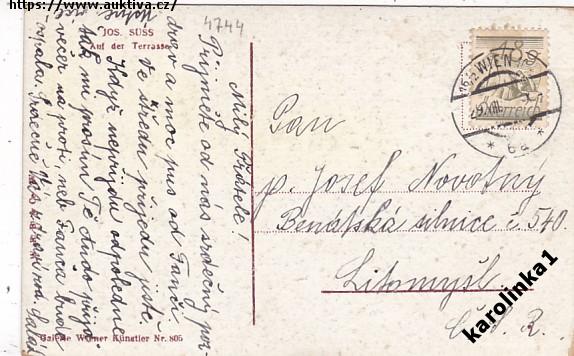 https://www.auktiva.cz/
4744
JOS. SÜSS
Auf der Terrasse
Milý Příteli!
Přijměte od nás srdečný poz-
drav a moc pus od Fanči
Ve středu přijedu jistě.
Když nepřijedu odpoledne
tak mi prosím Tě Oudo přijď
večer na proti, neb Fanča bude
Galerie Wiener Künstler Nr. 805
WIEN
* 6a *
Pan
p. Josef Novotný
Benátská ulnice č. 540.
Litomyšl.
Č. S. R.
karolinka1